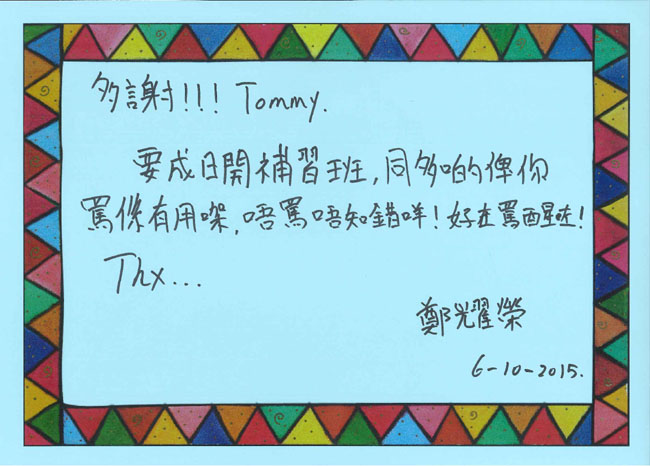 多謝!!! Tommy.
要成日開補習班, 同多啲俾你
罵係有用㗎, 唔罵唔知錯咩! 好在罵醒咗!
Thx...
鄭光耀榮
6-10-2015.